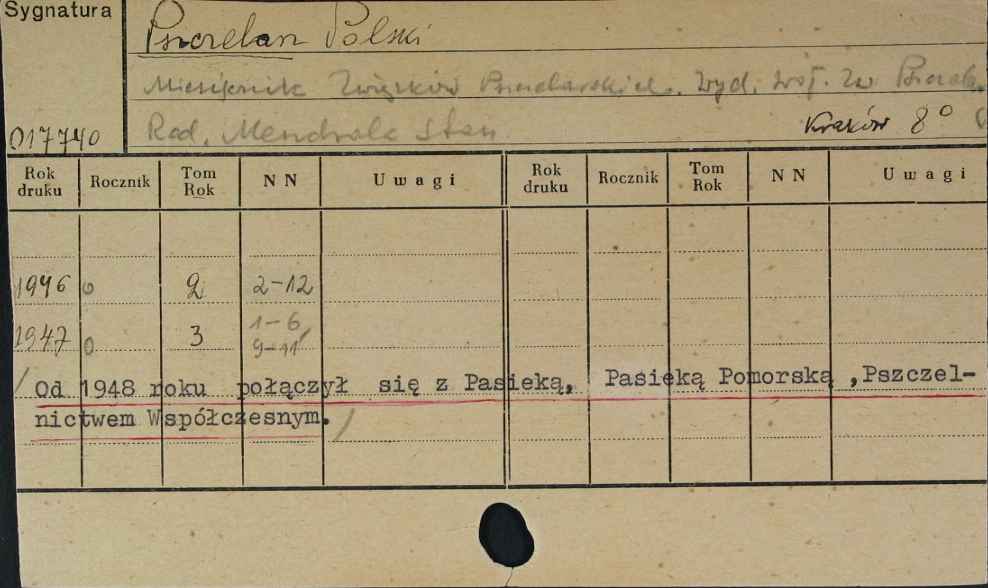 Sygnatura
Pszczelarz Polski
Miesięcznik Związków Pszczelarskich. Wyd. Woj. Zw. Pszczel.
017740
Red. Mendrala Stan. Kraków 8°
Rok druku Rocznik Tom Rok NN Uwagi Rok druku Rocznik Tom Rok NN Uwagi
1946 0 2 2-12
1947 0 3 1-6
9-11
/ Od 1948 roku połączył się z Pasieką, Pasieką Pomorską ,Pszczel-
nictwem Współczesnym. /